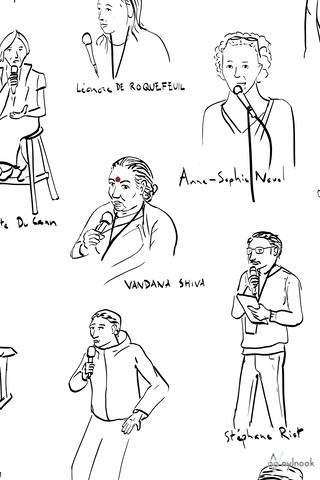 Léonore DE ROQUEFEUIL
Anne-Sophie Novel
Du Cann
VANDANA SHIVA
Stéphane Riot